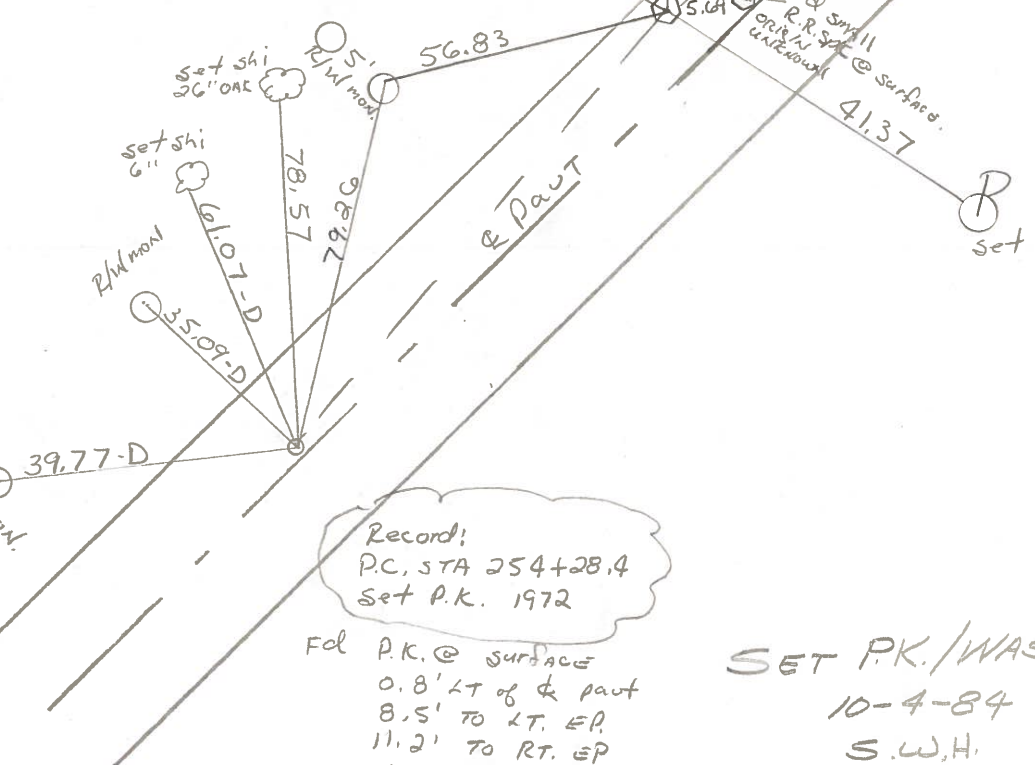 5.69
& small
R.R. SPK @ surface.
ORIGIN
UNKNOWN
56.83
5'
R/W mon.
set shi
26" OAK
set shi
6"
41.37
set
78.57
79.26
61.07-D
R/W mon
35.09-D
39.77-D
℄ Pavt
Record:
P.C. STA 254+28.4
Set P.K. 1972
Fd P.K. @ surface
0.8' LT of ℄ pavt
8.5' TO LT. EP.
11.2' TO RT. EP
SET P.K./WAS
10-4-84
S.W.H.